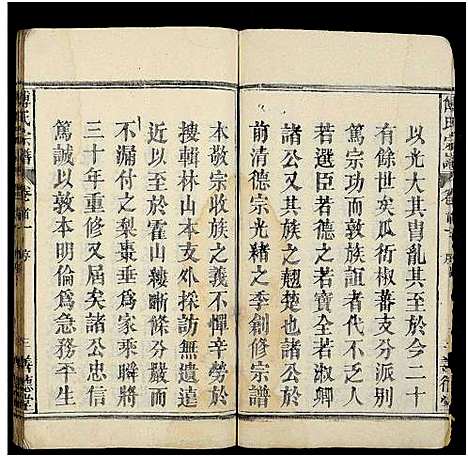 傅氏宗譜
以光大其冑亂其至於今二十
有餘世矣瓜㼉椒蕃支分派別
若宗功而敦族誼者代不乏人
若選臣若德之若寶全若淑卿
諸公
前清德宗光緒之季創修宗譜
本敬宗收族之義不憚辛勞於
搜輯林山本支外採訪無遺遠
近以至於霍山續晰條分嚴而
不漏付之梨棗垂爲家乘瞬將
三十年重修又屆矣諸公忠信
篤誠以敦本明倫爲急務平生
傅氏宗譜
卷首一
序
善德堂